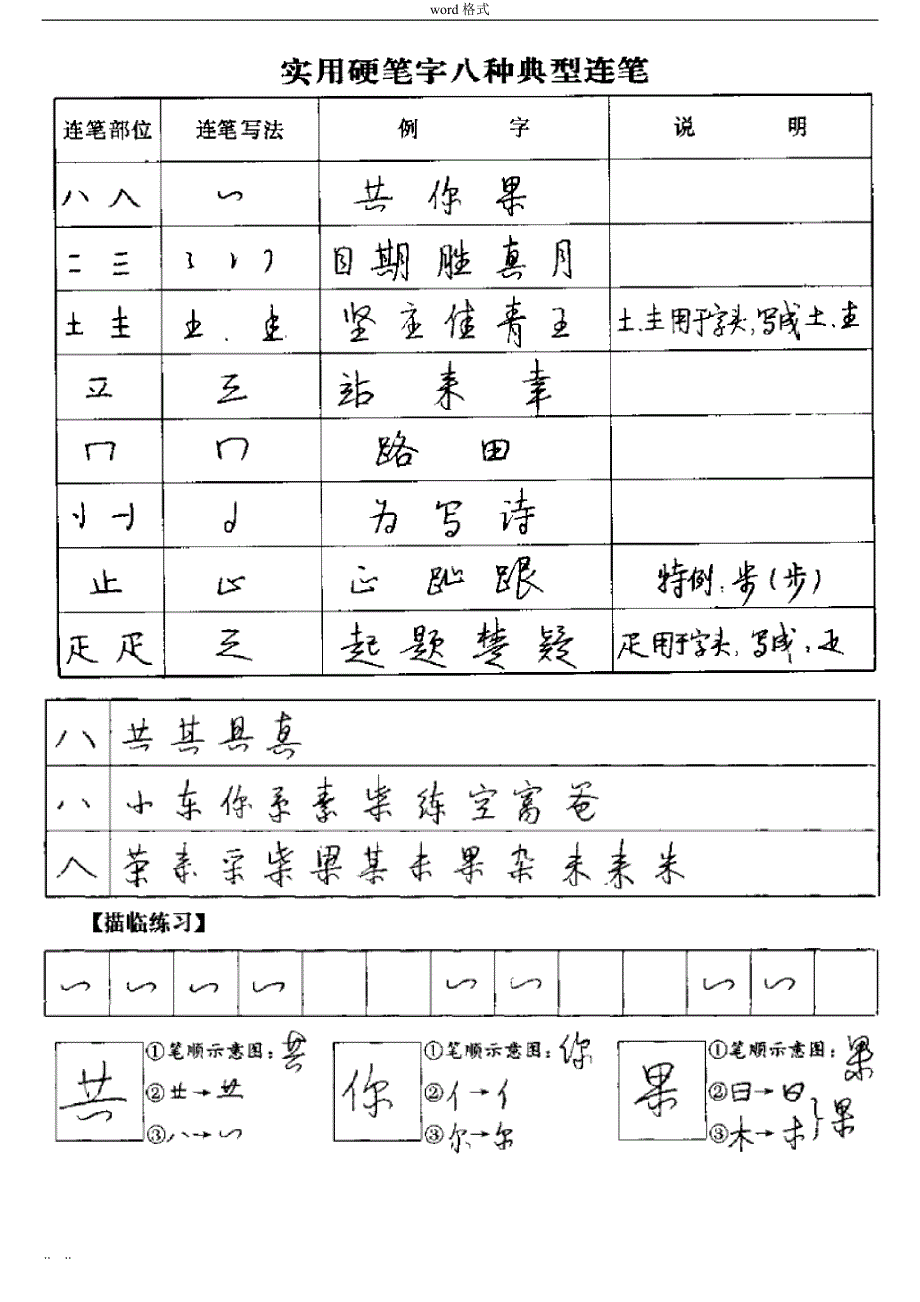 word 格式
实用硬笔字八种典型连笔
连笔部位 连笔写法 例 字 说 明
八 人 共 你 果
二 三 目 期 胜 真 月
土 圭 坚 至 佳 青 王 土.圭用于字头,写成土.圭
立 站 来 幸
冂 路 田
为 写 诗
止 正 趾 跟 特例:步(步)
起 题 楚 疑 疋用于字头,写成:
八 共 其 具 真
八 小 东 你 系 素 柴 练 空 富 爸
人 荣 素 采 柴 梁 某 未 果 杂 来 素 朱
【描临练习】
共 ①笔顺示意图:共 你 ①笔顺示意图:你 果 ①笔顺示意图:果
②龷→龷 ②亻→亻 ②曰→曰
③八→ ③尔→尔 ③木→木 }果
.. ..